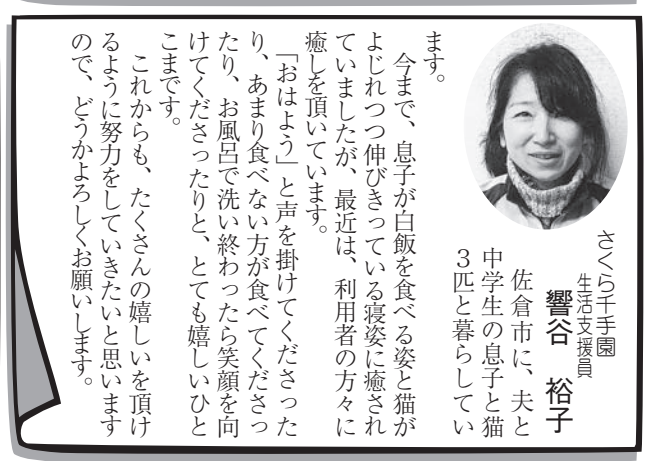 さくら千手園
生活支援員
響谷　裕子
　佐倉市に、夫と
中学生の息子と猫
３匹と暮らしてい
ます。
　今まで、息子が白飯を食べる姿と猫が
よじれつつ伸びきっている寝姿に癒され
ていましたが、最近は、利用者の方々に
癒しを頂いています。
　「おはよう」と声を掛けてくださった
り、あまり食べない方が食べてくださっ
たり、お風呂で洗い終わったら笑顔を向
けてくださったりと、とても嬉しいひと
こまです。
　これからも、たくさんの嬉しいを頂け
るように努力をしていきたいと思います
ので、どうかよろしくお願いします。